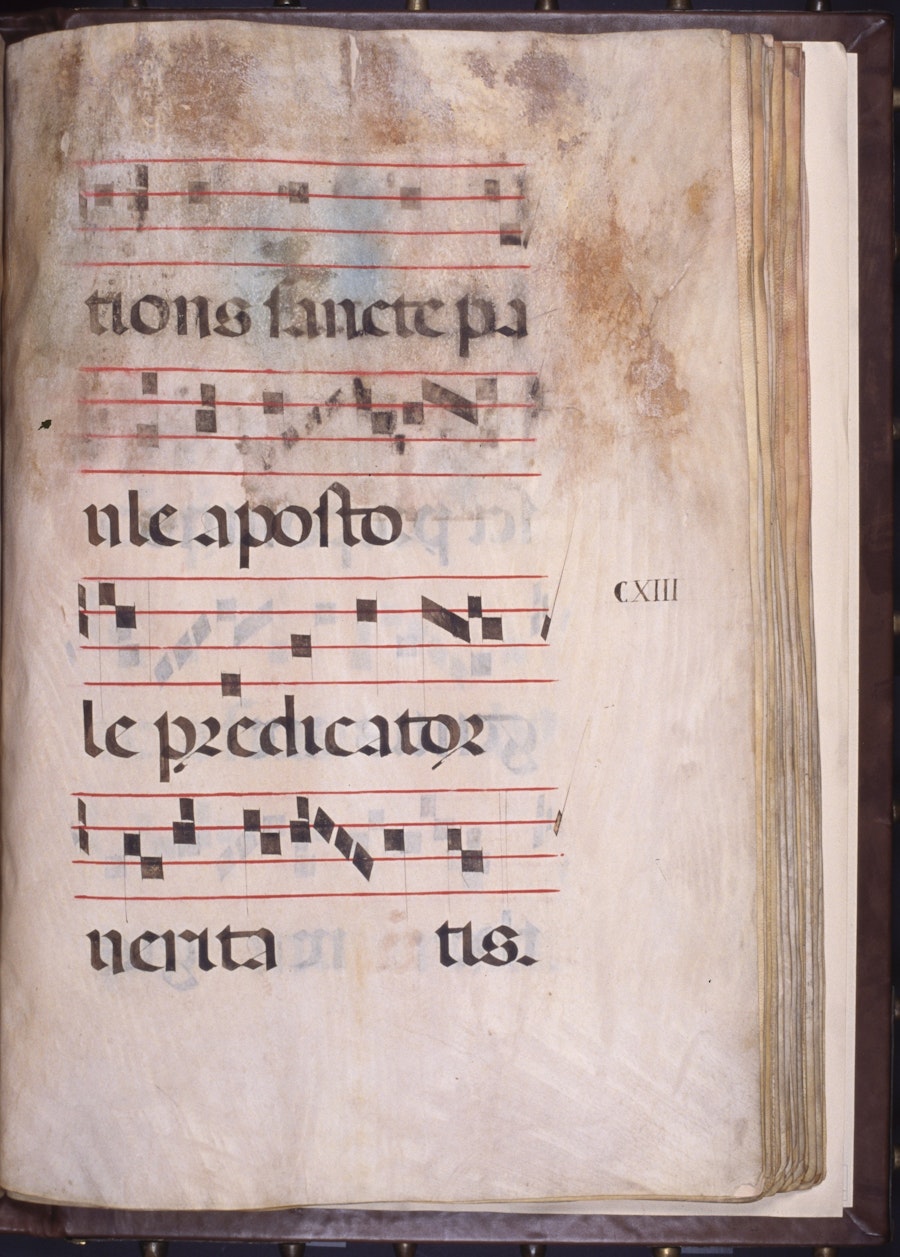 tions sancte pa
ule aposto
CXIII
le predicator
uerita tis.